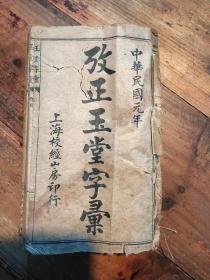 中華民國元年
攷正玉堂字彙
上海校經山房印行